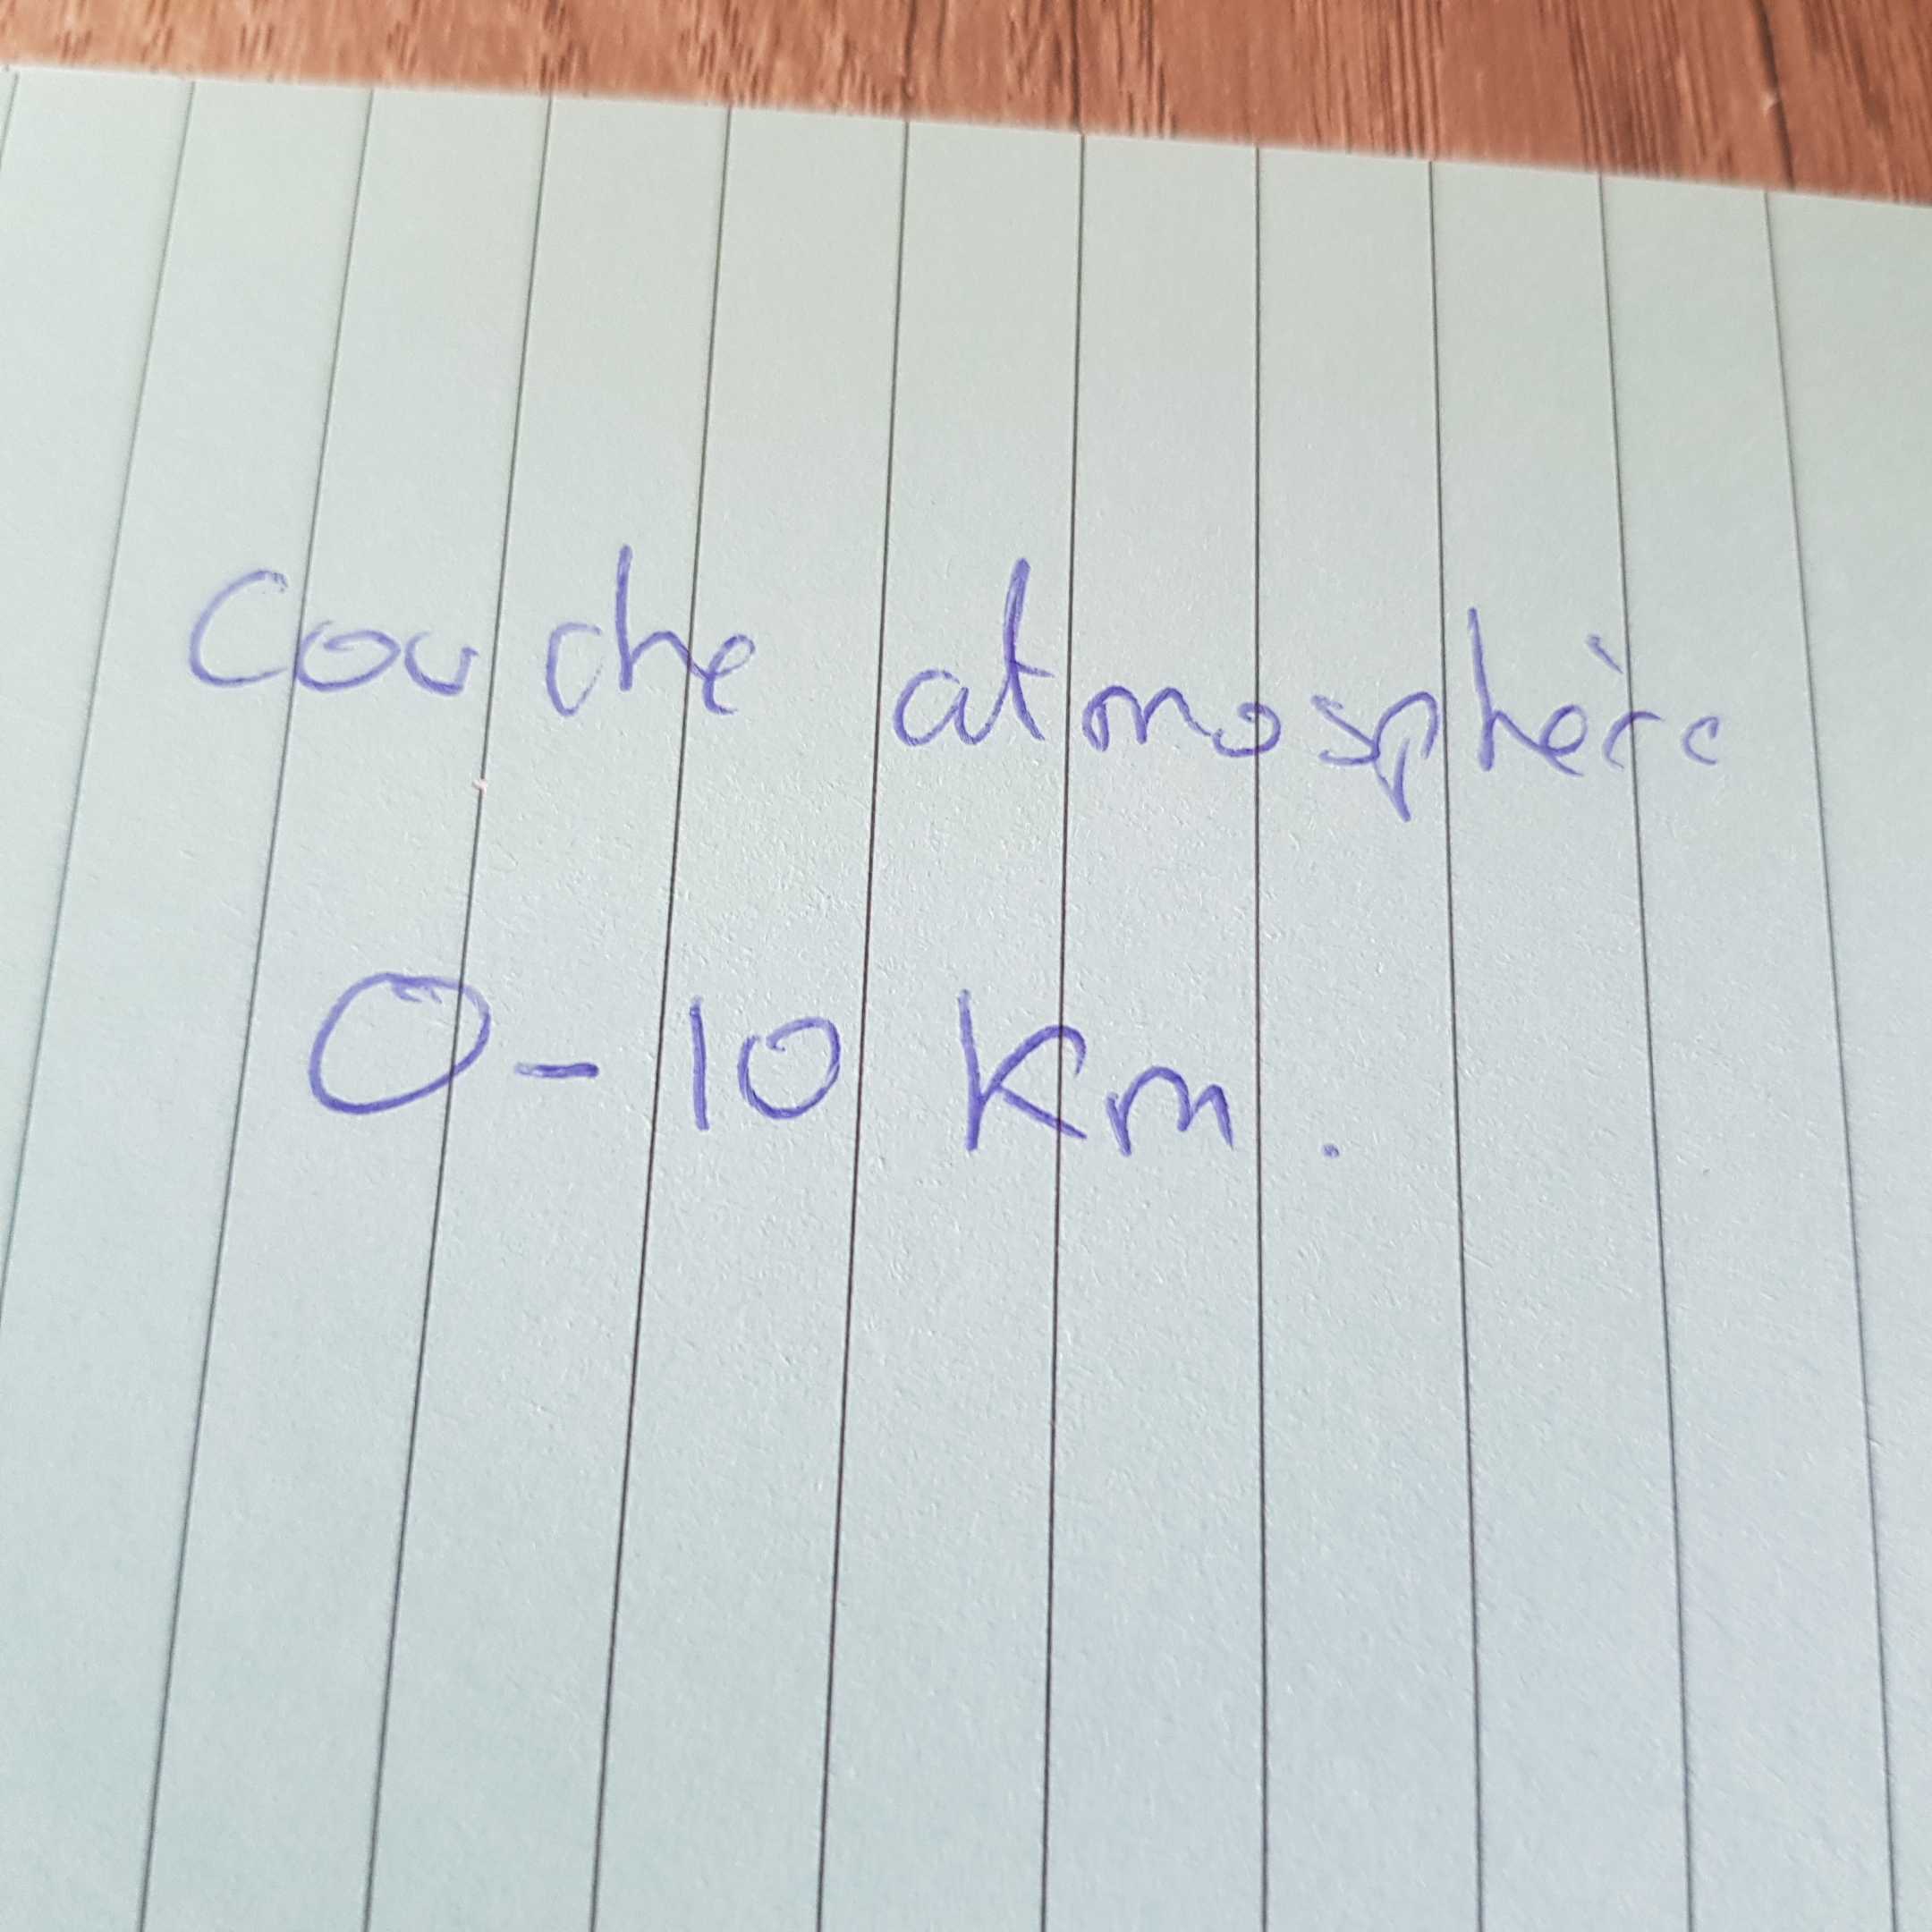 Couche atmosphère
0-10 Km.